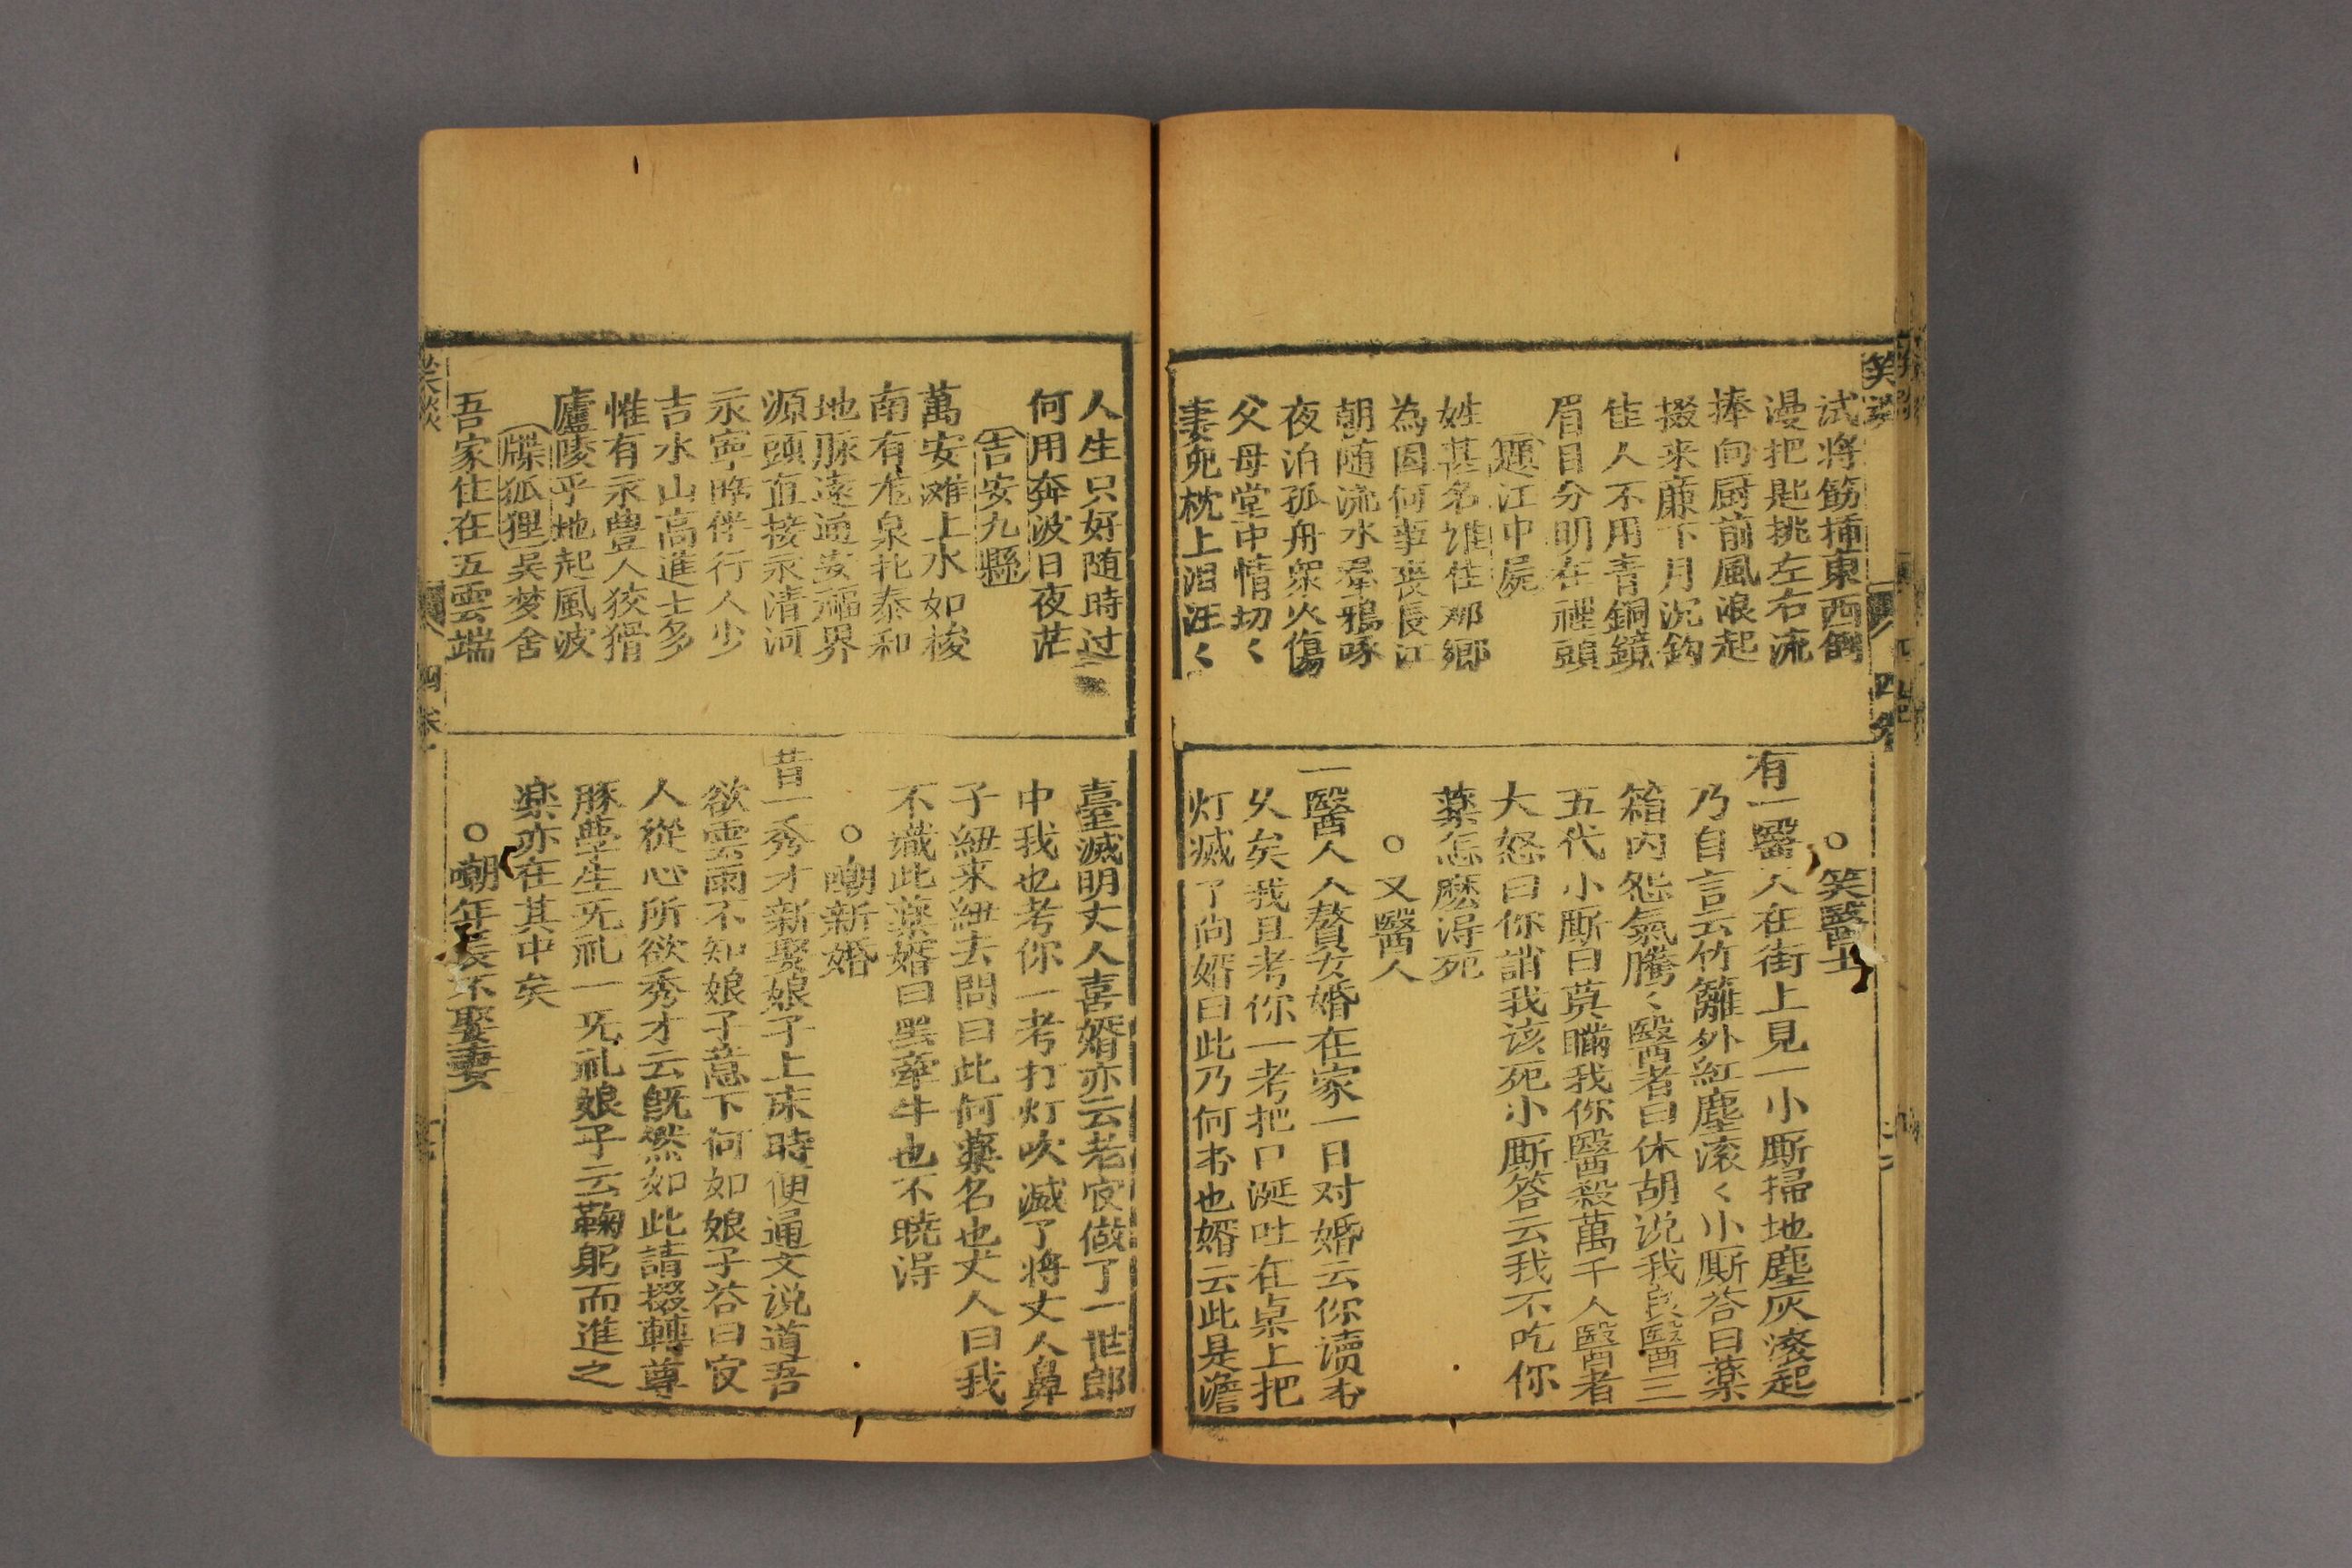 笑談
試將筯揷東西倒
漫把匙挑左右流
捧向厨前風浪起
掇来廉下月沉鈎
佳人不用青銅鏡
眉目分明在裡頭
題江中屍
姓甚名誰住那鄉
為因何事喪長江
朝随流水羣鴉啄
夜泊孤舟衆火傷
父母堂中情切〱
妻兒枕上泪汪〱
四卷
○笑醫士
有一醫人在街上見一小厮掃地塵灰滚起
乃自言云竹籬外紅塵滚〱小厮答曰薬
箱内怨氣騰〱醫者曰休胡说我良醫三
五代小厮曰莫瞞我你醫殺萬千人醫者
大怒曰你誚我该死小厮答云我不吃你
薬怎麽淂死
○又醫人
一醫人人贅女婚在家一日对婚云你读书
久矣我且考你一考把口涎吐在桌上把
灯滅了问婿曰此乃何书也婿云此是澹
人生只好随時过
何用奔波日夜茫
吉安九縣
萬安滩上水如梭
南有龙泉北泰和
地脉遠通安福界
源頭直接永清河
永寧路僻行人少
吉水山高進士多
惟有永豊人狡猾
廬陵平地起風波
牒狐狸吴梦舍
吾家住在五雲端
臺滅明丈人喜婿亦云老官做了一世郎
中我也考你一考打灯吹滅了将丈人鼻
子紐来紐去問曰此何薬名也丈人曰我
不識此薬婿曰黑牽牛也不曉淂
○嘲新婚
昔一秀才新娶娘子上床時便通文说道吾
欲雲雨不知娘子意下何如娘子答曰官
人從心所欲秀才云既然如此請掇轉尊
豚學生旡礼一旡礼娘子云鞠躬而進之
楽亦在其中矣
○嘲年長不娶妻
笑談
四卷